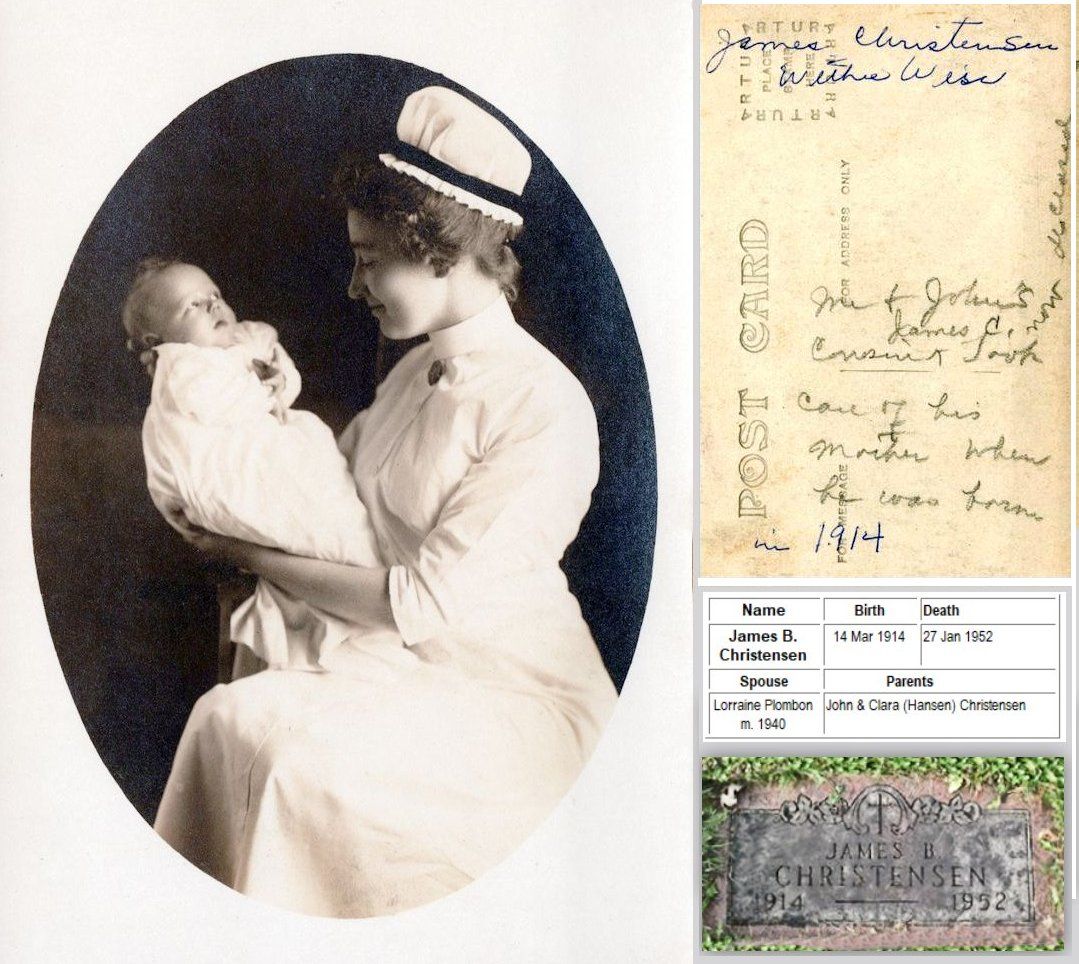 James Christensen
Withee Wisc
ARTURA
ARTURA
ARTURA
ARTURA
PLACE
STAMP
HERE
POST CARD
FOR ADDRESS ONLY
FOR MESSAGE
Me & John's
James C. now deceased
Cousin & I took
care of his
Mother when
he was born
in 1914
Name Birth Death
James B. Christensen 14 Mar 1914 27 Jan 1952
Spouse Parents
Lorraine Plombon m. 1940 John & Clara (Hansen) Christensen
JAMES B
CHRISTENSEN
1914 1952